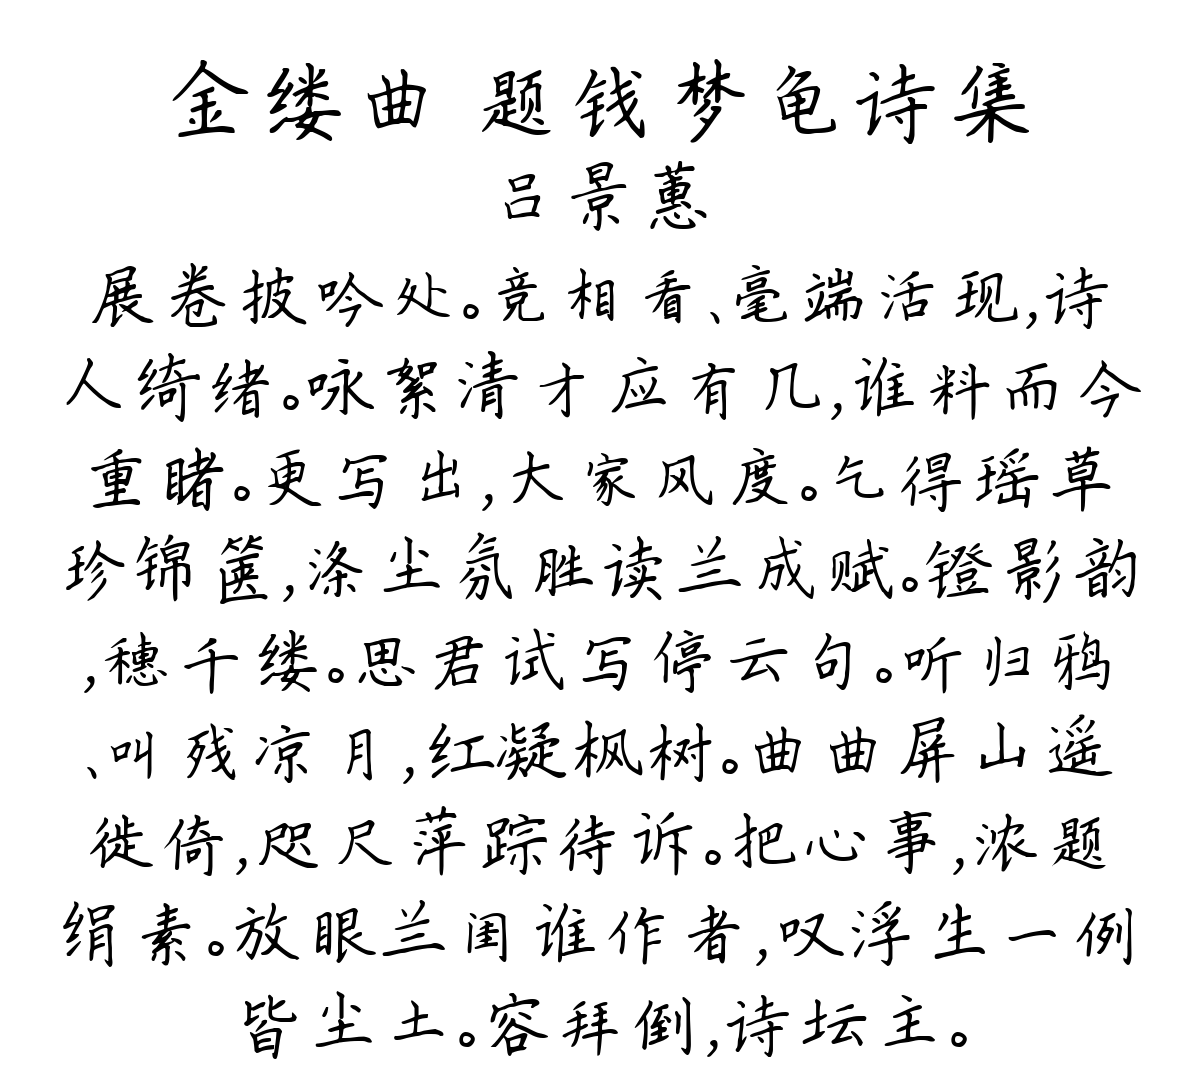 金缕曲 题钱梦龟诗集
吕景蕙
展卷披吟处。竞相看、毫端活现,诗
人绮绪。咏絮清才应有几,谁料而今
重睹。更写出,大家风度。乞得瑶草
珍锦箧,涤尘氛胜读兰成赋。镫影韵
,穗千缕。思君试写停云句。听归鸦
、叫残凉月,红凝枫树。曲曲屏山遥
徙倚,咫尺萍踪待诉。把心事,浓题
绢素。放眼兰闺谁作者,叹浮生一例
皆尘土。容拜倒,诗坛主。